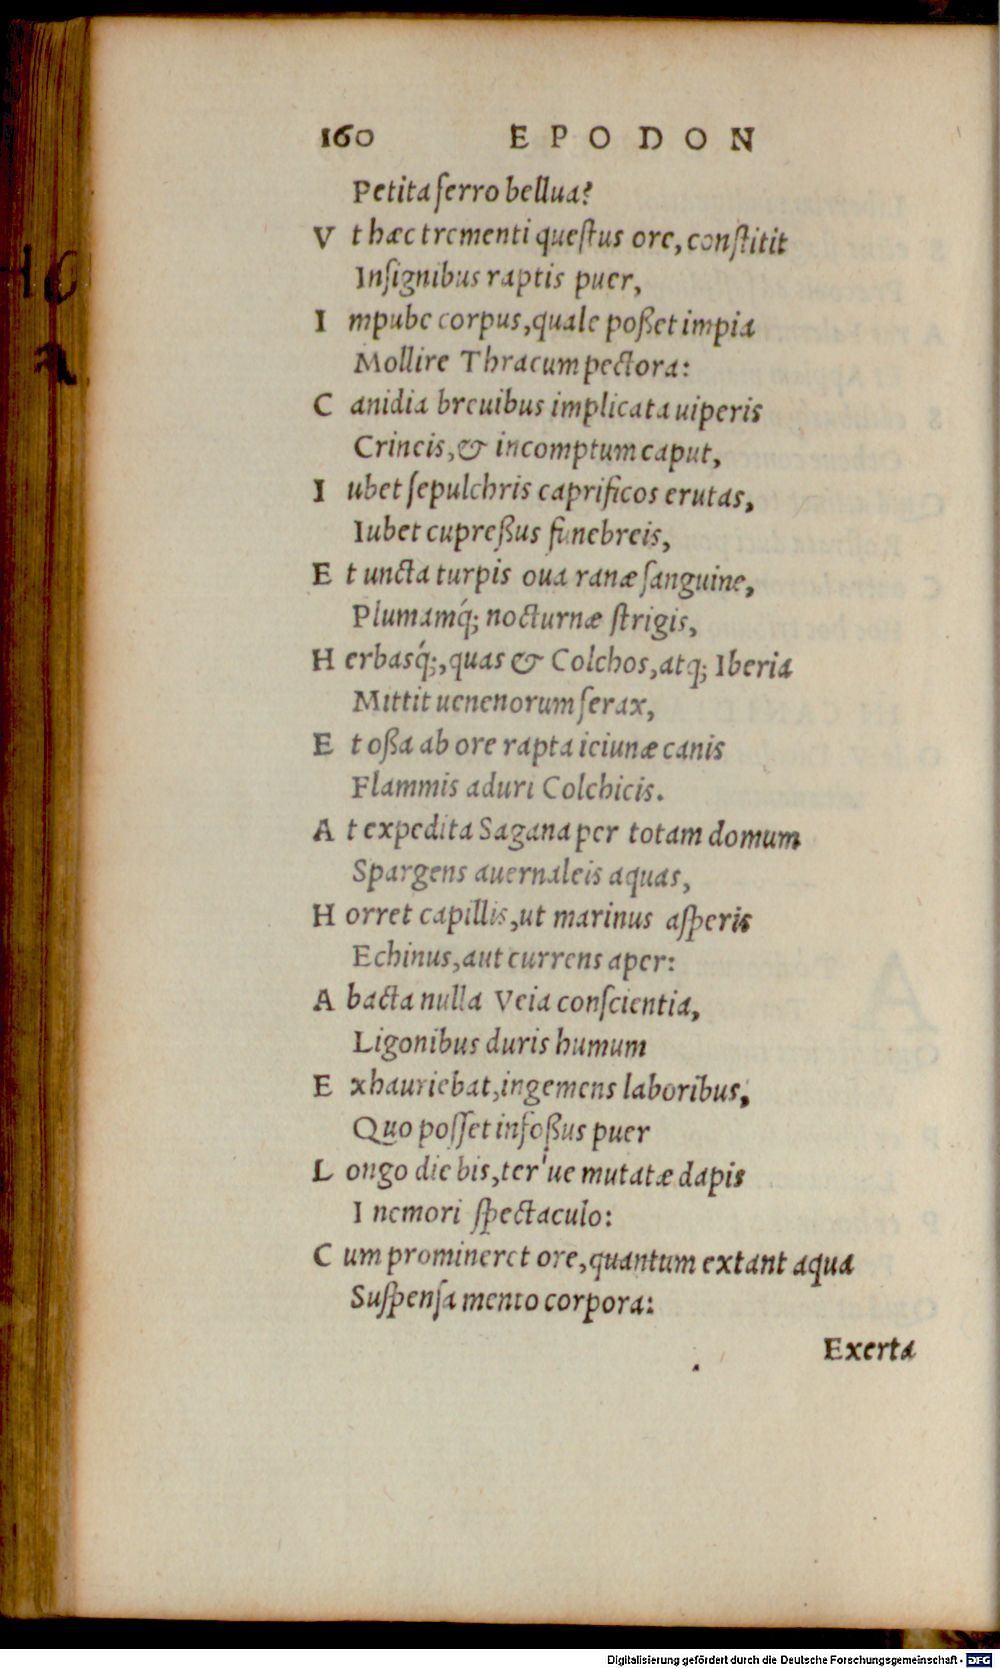 160 EPODON
Petita ferro bellua?
V t hæc trementi questus ore, constitit
Insignibus raptis puer,
I mpube corpus, quale poßet impia
Mollire Thracum pectora:
C anidia breuibus implicata uiperis
Crineis, & incomptum caput,
I ubet sepulchris caprificos erutas,
Iubet cupreßus funebreis,
E t uncta turpis oua ranæ sanguine,
Plumamq́; nocturnæ strigis,
H erbasq́;, quas & Colchos, atq; Iberia
Mittit uenenorum ferax,
E t oßa ab ore rapta ieiunæ canis
Flammis aduri Colchicis.
A t expedita Sagana per totam domum
Spargens auernaleis aquas,
H orret capillis, ut marinus asperis
Echinus, aut currens aper:
A bacta nulla Veia conscientia,
Ligonibus duris humum
E xhauriebat, ingemens laboribus,
Quo posset infoßus puer
L ongo die bis, ter'ue mutatæ dapis
I nemori spectaculo:
C um promineret ore, quantum extant aqua
Suspensa mento corpora:
Exerta
HO
a
Digitalisierung gefördert durch die Deutsche Forschungsgemeinschaft - DFG